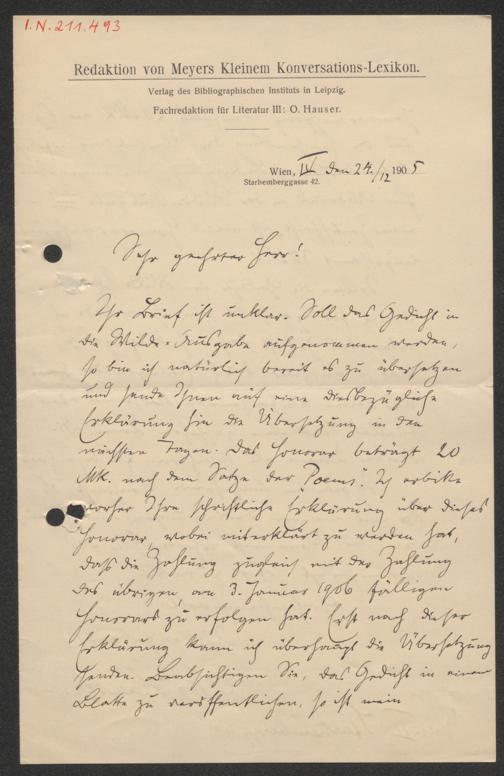 I.N. 211.493
Redaktion von Meyers Kleinem Konversations-Lexikon.
Verlag des Bibliographischen Instituts in Leipzig.
Fachredaktion für Literatur III: O. Hauser.
Wien, IV den 24./12 1905
Starhemberggasse 42.
Sehr geehrter Herr!
Ihr Brief ist unklar. Soll das Gedicht in
die Wilde-Ausgabe aufgenommen werden,
so bin ich natürlich bereit es zu übersetzen
und sende Ihnen auf eine diesbezügliche
Erklärung hin die Übersetzung in den
nächsten Tagen. Das Honorar beträgt 20
Mk. nach dem Satze der "Poems". Ich erbitte
vorher Ihre schriftliche Erklärung über dieses
Honorar, wobei miterklärt zu werden hat,
daß die Zahlung zugleich mit der Zahlung
des übrigen, am 3. Januar 1906 fälligen
Honorars zu erfolgen hat. Erst nach dieser
Erklärung kann ich überhaupt die Übersetzung
senden. Beabsichtigen Sie, das Gedicht in einem
Blatte zu veröffentlichen, so ist mein